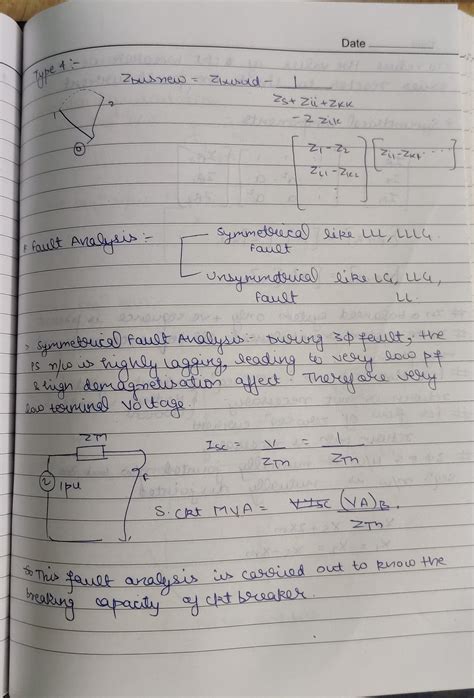 Date
Type 4 :-
Zbusnew = Zbusold - 1
Zs + Zii + Zkk
- 2 Zik
[ Z1 - Z2
Zi1 - Zk2
⋮ ] [ Zi1 - Zk1 ... ]
1
2
0
* Fault Analysis :-
Symmetrical like LLL, LLLG
fault
Unsymmetrical like LG, LLG,
fault LL.
Symmetrical Fault Analysis :- During 3φ fault, the
PS n/w is highly lagging, leading to very low pf
& high demagnetisation affect. Therefore very
low terminal voltage.
ZTh
1 pu
F
Isc = V/ZTh = 1/ZTh
S. ckt MVA = (VA)B / ZTh
So This fault analysis is carried out to know the
breaking capacity of ckt breaker.